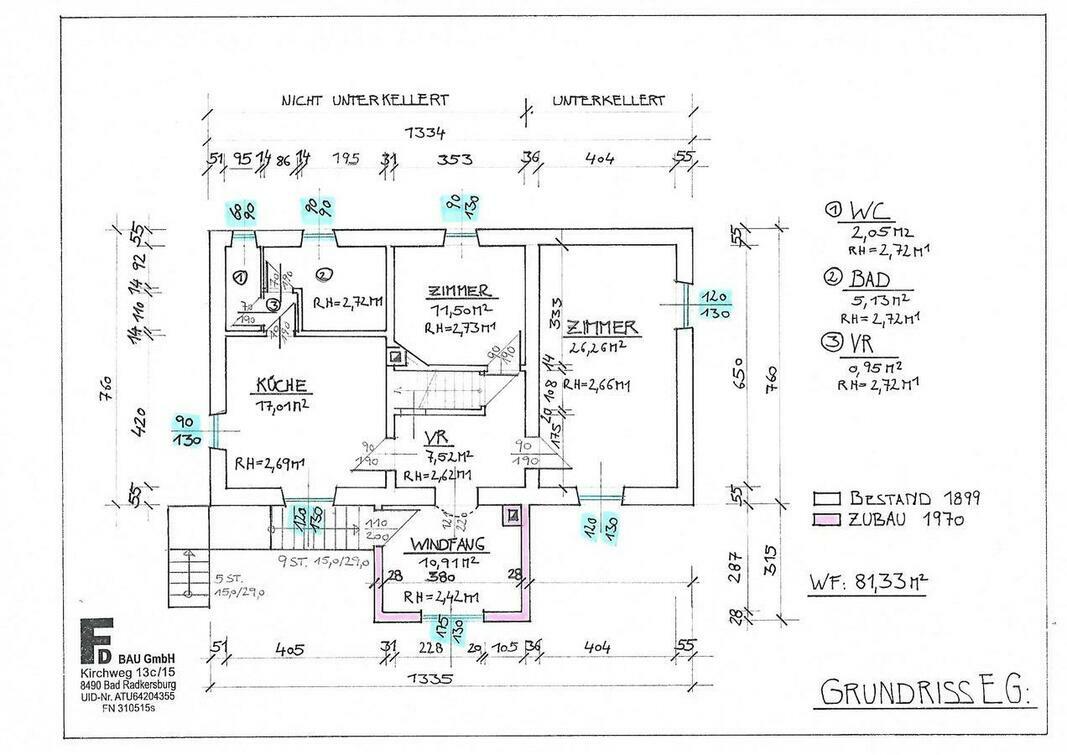 NICHT UNTERKELLERT
UNTERKELLERT
1334
51 95 14 86 14 195 31 353 36 404 55
60
90
90
90
90
130
55
92
14
110
14
420
55
760
1
2
3
RH=2,72M1
70
190
70
190
70
190
ZIMMER
11,50M²
RH=2,73M1
90
190
ZIMMER
26,26M²
RH=2,66M1
333
14
108
20
175
120
130
55
650
55
760
287
28
315
KÜCHE
17,01M²
RH=2,69M1
90
130
90
190
VR
7,52M²
RH=2,62M1
90
190
120
130
110
200
220
120
130
WINDFANG
10,91M²
28 380 28
RH=2,42M1
175
130
9 ST. 15,0/29,0
5 ST.
15,0/29,0
51 405 31 228 20 105 36 404 55
1335
① WC
2,05M2
RH=2,72M1
② BAD
5,13M²
RH=2,72M1
③ VR
0,95M²
RH=2,72M1
BESTAND 1899
ZUBAU 1970
WF: 81,33M²
FD BAU GmbH
Kirchweg 13c/15
8490 Bad Radkersburg
UID-Nr. ATU64204355
FN 310515s
GRUNDRISS E.G: